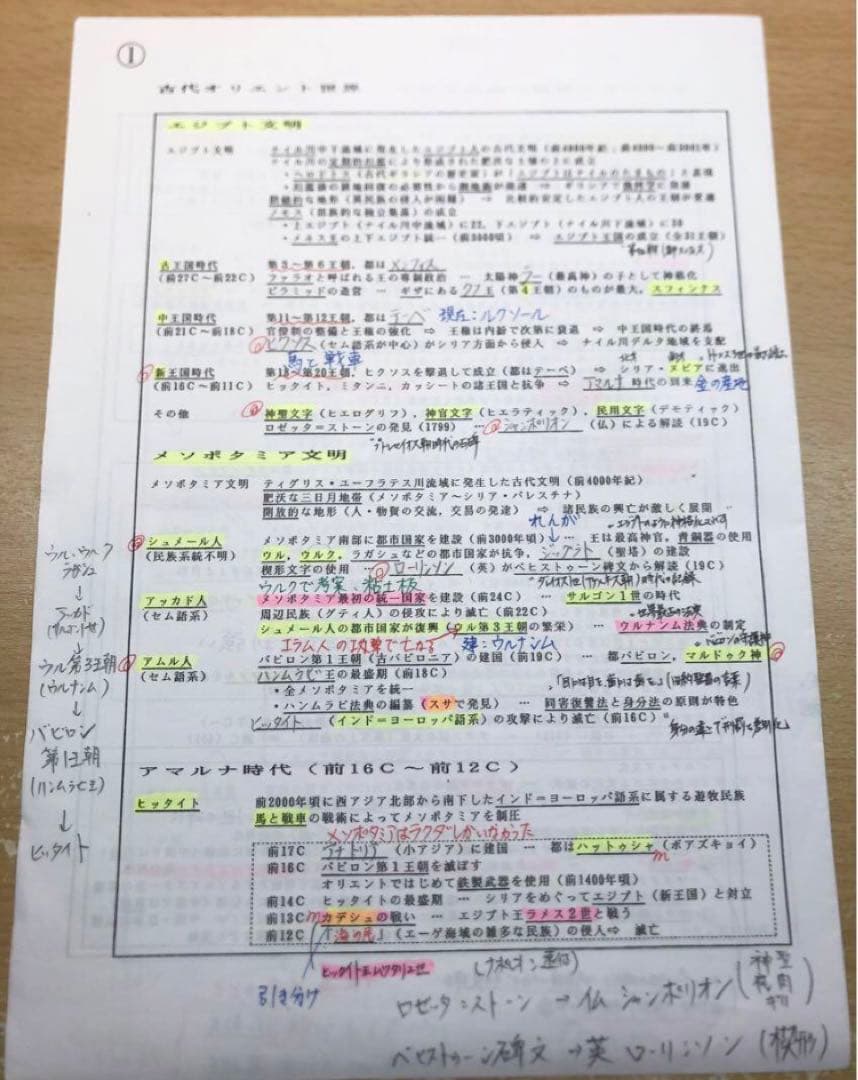 ①
古代オリエント世界
エジプト文明
エジプト文明 ナイル川中下流域に発生したエジプト人の古代文明
ナイル川の定期的氾濫により形成された肥沃な土壌の上に成立
・ヘロドトス(古代ギリシアの歴史家)が「エジプトはナイルのたまもの」と表現
・氾濫後の耕地回復の必要性から測地術が発達 ⇒ ギリシアで幾何学に発展
閉鎖的な地形(異民族の侵入が困難) ⇒ 比較的安定したエジプト人の王朝が変遷
ノモス(部族的な独立集落)の成立
・上エジプト(ナイル川中流域)に22,下エジプト(ナイル川下流域)に20
・メネス王の上下エジプト統一(前3000頃) ⇒ エジプト王国の成立(全31王朝)
古王国時代 第3~第6王朝,都はメンフィス
(前27C~前22C) ファラオと呼ばれる王の専制政治 … 太陽神ラー(最高神)の子として神格化
ピラミッドの造営 … ギザにあるクフ王(第4王朝)のものが最大,スフィンクス
中王国時代 第11~第12王朝,都はテーベ 現在:ルクソール
(前21C~前18C) 官僚制の整備と王権の強化 ⇒ 王権は内紛で次第に衰退 ⇒ 中王国時代の終焉
ヒクソス(セム語系が中心)がシリア方面から侵入 ⇒ ナイル川デルタ地域を支配
馬と戦車
新王国時代 第18~第20王朝,ヒクソスを撃退して成立(都はテーベ) ⇒ シリア・ヌビアに進出
(前16C~前11C) ヒッタイト,ミタンニ,カッシートの諸王国と抗争 ⇒ アマルナ時代の到来 金の産地
その他 神聖文字(ヒエログリフ),神官文字(ヒエラティック),民用文字(デモティック)
ロゼッタ=ストーンの発見(1799) … シャンポリオン(仏)による解読(19C)
メソポタミア文明
メソポタミア文明 ティグリス・ユーフラテス川流域に発生した古代文明(前4000年紀)
肥沃な三日月地帯(メソポタミア~シリア・パレスチナ)
開放的な地形(人・物資の交流,交易の発達) ⇒ 諸民族の興亡が激しく展開
れんが
シュメール人 メソポタミア南部に都市国家を建設(前3000年頃) … 王は最高神官,青銅器の使用
(民族系統不明) ウル,ウルク,ラガシュなどの都市国家が抗争,ジッグラト(聖塔)の建設
楔形文字の使用 … ローリンソン(英)がベヒストゥーン碑文から解読(19C)
ウルクで考案、粘土板
アッカド人 メソポタミア最初の統一国家を建設(前24C) … サルゴン1世の時代
(セム語系) 周辺民族(グティ人)の侵攻により滅亡(前22C)
シュメール人の都市国家が復興(ウル第3王朝の繁栄) … ウルナンム法典の制定
エラム人の攻撃で亡ぶる 建:ウルナンム
アムル人 バビロン第1王朝(古バビロニア)の建国(前19C) … 都バビロン,マルドゥク神
(セム語系) ハンムラビ王の最盛期(前18C)
・全メソポタミアを統一 「目には目を、歯には歯を」(旧約聖書の言葉)
・ハンムラビ法典の編纂(スサで発見) … 同害復讐法と身分法の原則が特色
ヒッタイト(インド=ヨーロッパ語系)の攻撃により滅亡(前16C)
アマルナ時代(前16C~前12C)
ヒッタイト 前2000年頃に西アジア北部から南下したインド=ヨーロッパ語系に属する遊牧民族
馬と戦車の戦術によってメソポタミアを制圧
メソポタミアはラクダしかいなかった
前17C アナトリア(小アジア)に建国 … 都はハットゥシャ(ボアズキョイ)
前16C バビロン第1王朝を滅ぼす
オリエントではじめて鉄製武器を使用(前1400年頃)
前14C ヒッタイトの最盛期 … シリアをめぐってエジプト(新王国)と対立
前13C カデシュの戦い … エジプト王ラメス2世と戦う
前12C 「海の民」(エーゲ海域の雑多な民族)の侵入⇒ 滅亡
引き分け
ヒッタイト王ムワタリ2世
ロゼッタ=ストーン → 仏 シャンポリオン
ベヒストゥーン碑文 → 英 ローリンソン(楔形)
ウル、ウルク
ラガシュ
↓
アッカド
↓
ウル第3王朝
(ウルナンム)
↓
バビロン
第1王朝
(ハンムラビ王)
↓
ヒッタイト